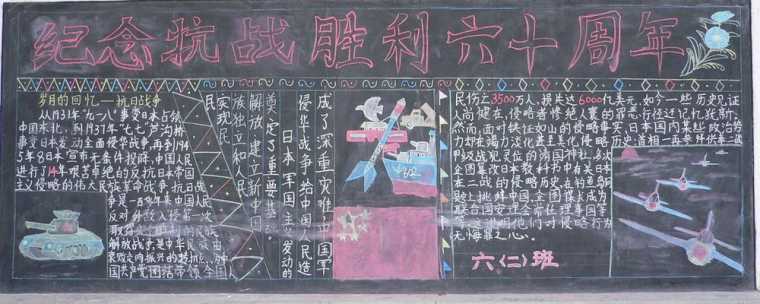 纪念抗战胜利六十周年
岁月的回忆——抗日战争
从1931年“九一八”事变日本占领
中国东北，到1937年“七七”芦沟桥
事变日本发动全面侵华战争，再到194
5年8日本宣布无条件投降，中国人民
进行了14年艰苦卓绝的反抗日本帝国
主义侵略的伟大民族革命战争，抗日战
争是一百多年来中国人民
反对外敌入侵第一次
取得完全胜利的民族
解放战争，是中华民族由
衰败走向振兴的转折点，中
国共产党团结带领全国人
民
实现民
族独立和人民
解放，建立新中国
奠定了重要基
日本军国主义发动的
侵华战争给中国人民造
成了深重灾难，中国军
民伤亡3500万人，损失达6000亿美元，如今一些历史见证
人尚健在，侵略者惨绝人寰的罪恶行径过记忆犹新。
然而，面对铁证如山的侵略事实，日本国内某些政治势
力却在竭力淡化甚至美化侵略历史，首相一再参拜供奉二战
甲级战犯灵位的靖国神社，多次
企图篡改日本教科书中有关日本
在二战的侵略历史，在钓鱼岛问
题上挑衅中国，企图谋求成为
联合国安理会常任理事国等
他们对侵略行为
无悔罪之心。
六〈二〉班